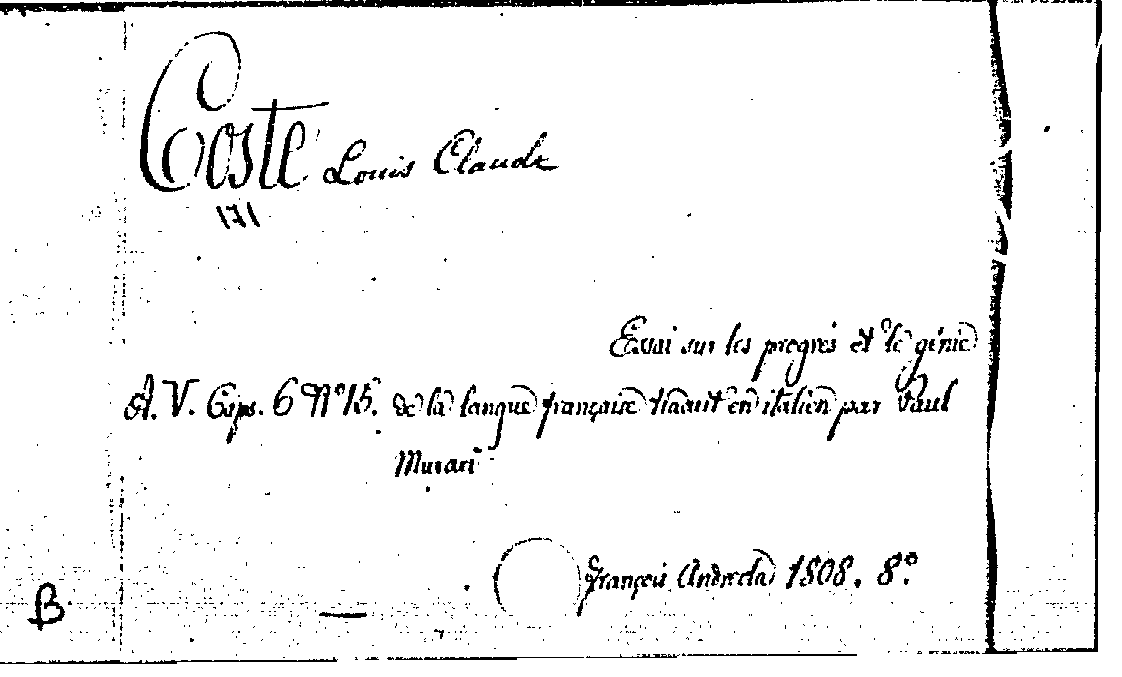 Coste Louis Claude
171
Essai sur les progrès et le génie
A. V. Caps. 6 Nº 15. de la langue française traduit en italien par Paul
Murari
François Andreola 1808. 8º.
B.